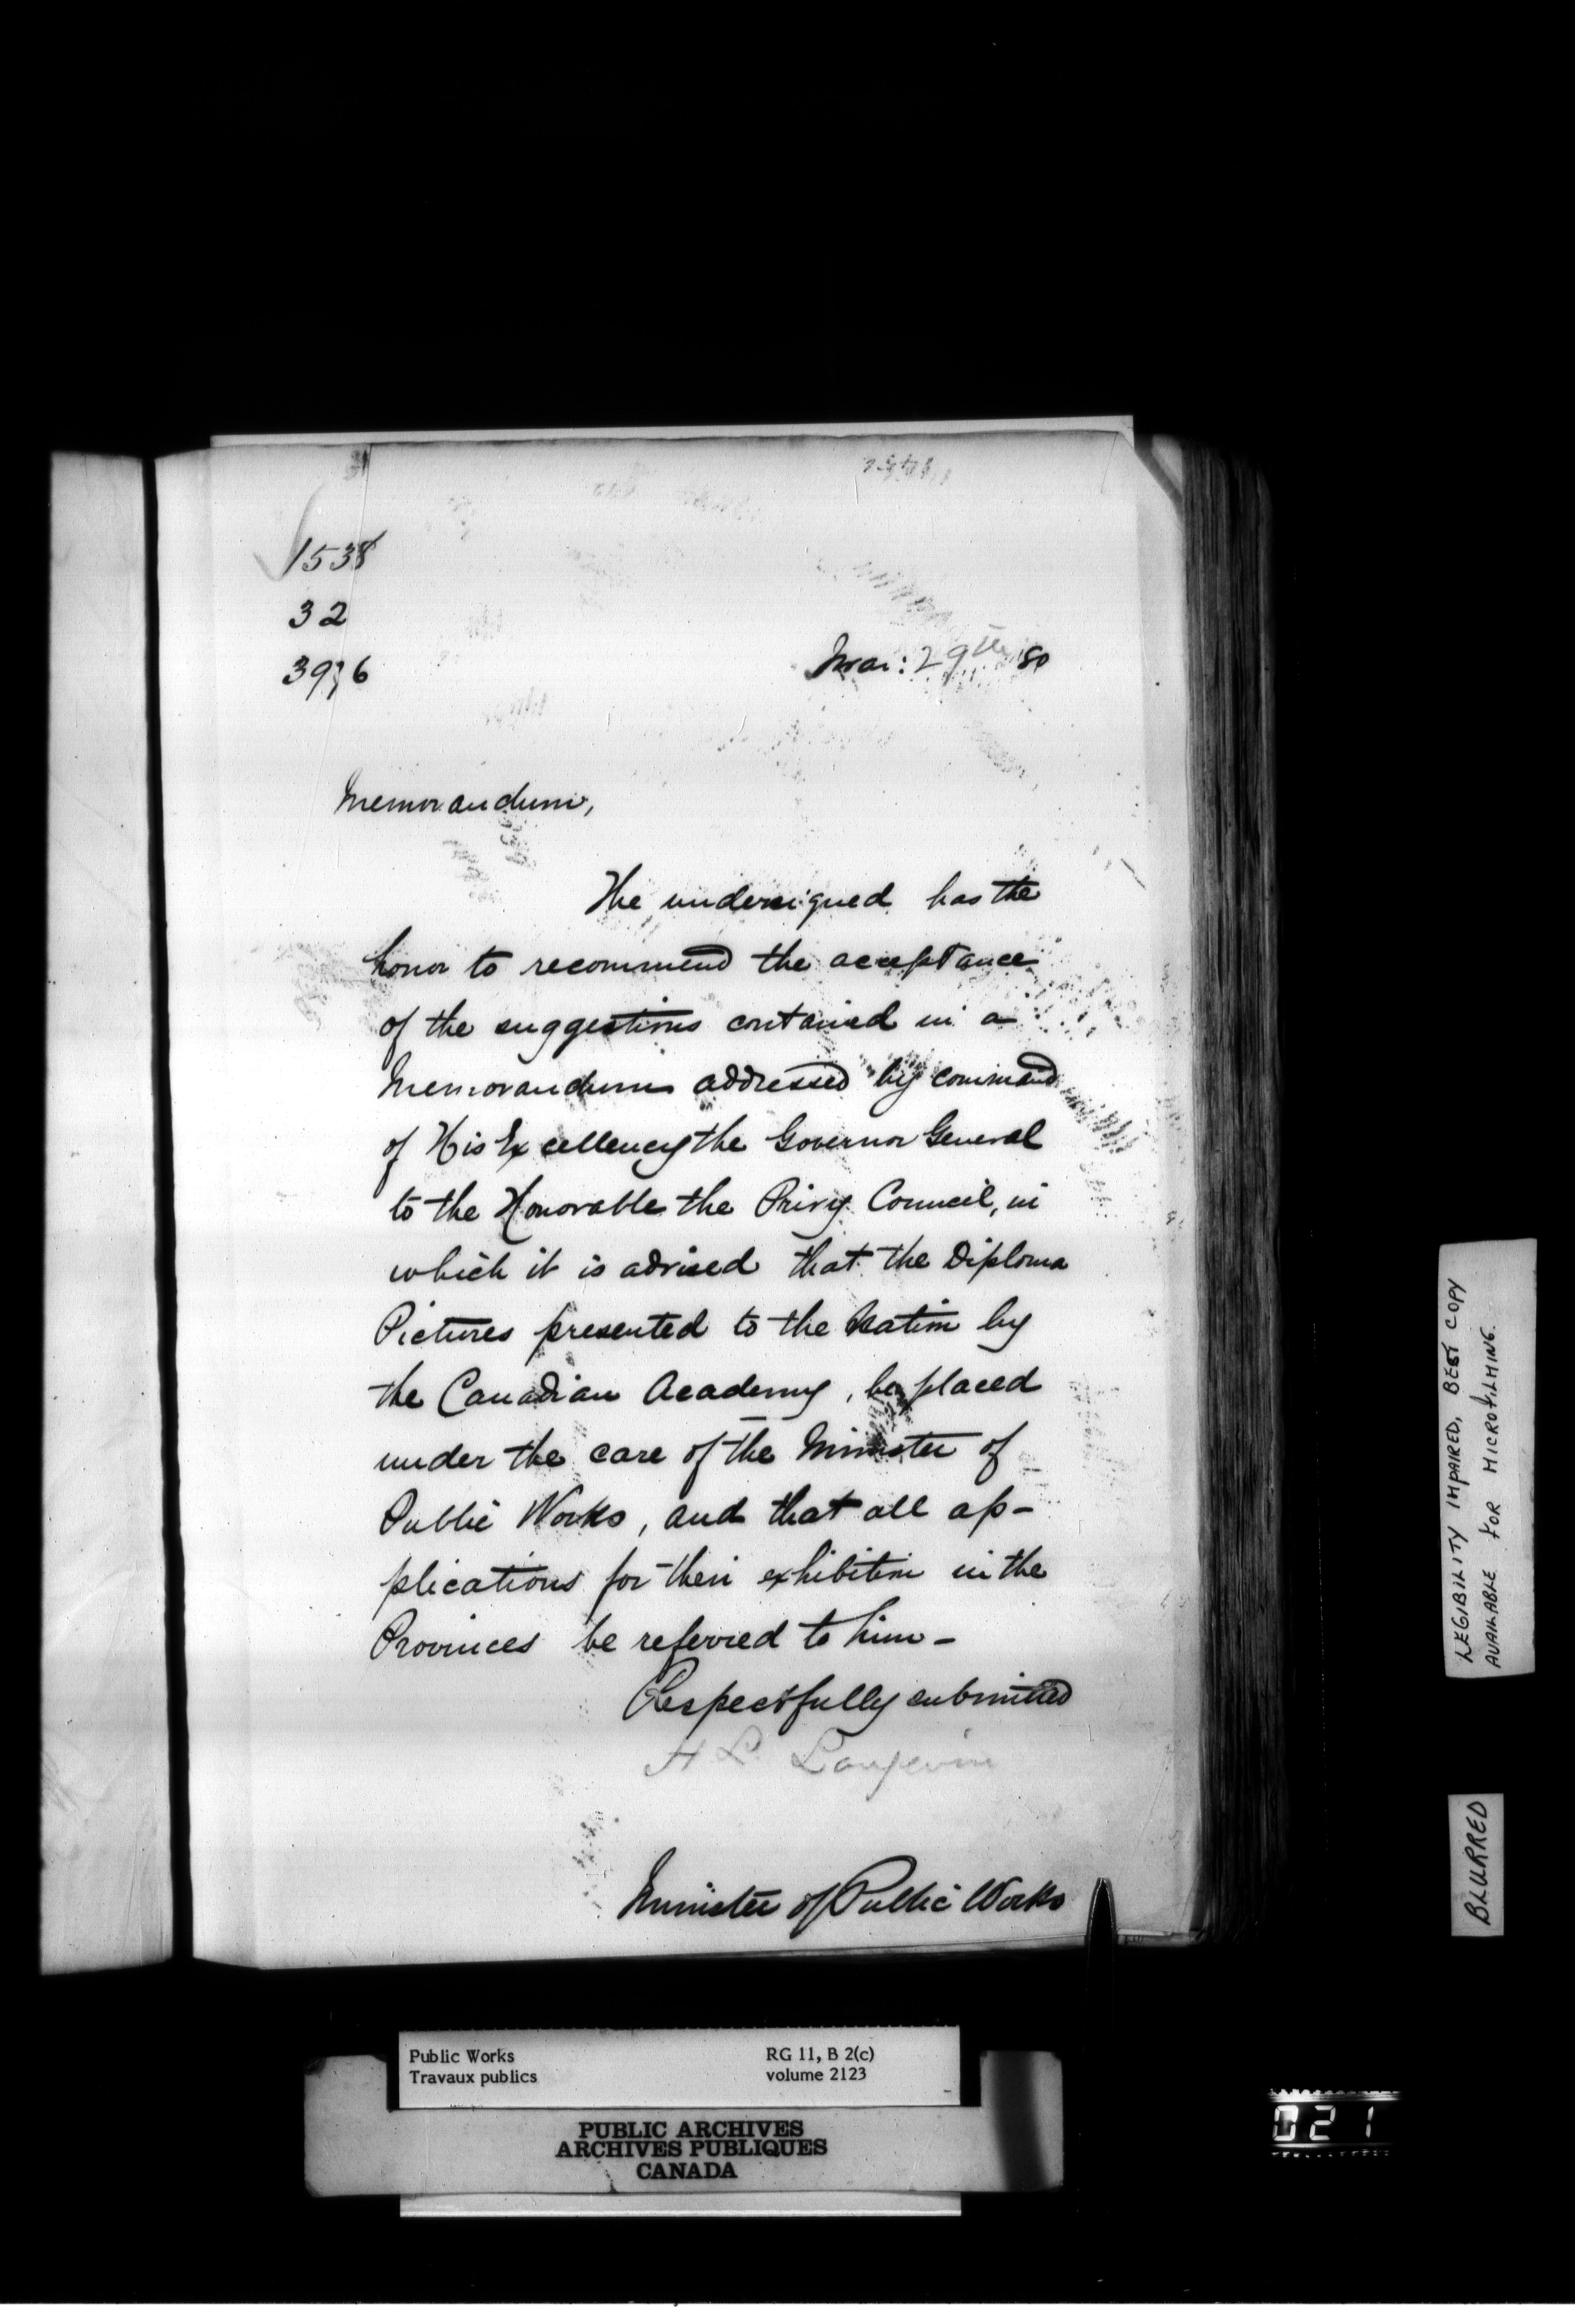 1538
32
Mar: 29th 80
Memorandum,
The undersigned has the
honor to recommend the acceptance
of the suggestions contained in a
Memorandum addressed by command
of His Excellency the Governor General
to the Honorable the Privy Council, in
which it is advised that the Diploma
Pictures presented to the Nation by
the Canadian Academy, be placed
under the care of the Minister of
Public Works, and that all ap-
plications for their exhibition in the
Provinces be referred to him -
Respectfully submitted
H L Langevin
Minister of Public Works
LEGIBILITY IMPAIRED, BEST COPY
AVAILABLE FOR MICROFILMING.
BLURRED
Public Works RG 11, B 2(c)
Travaux publics volume 2123
PUBLIC ARCHIVES
ARCHIVES PUBLIQUES
CANADA
021